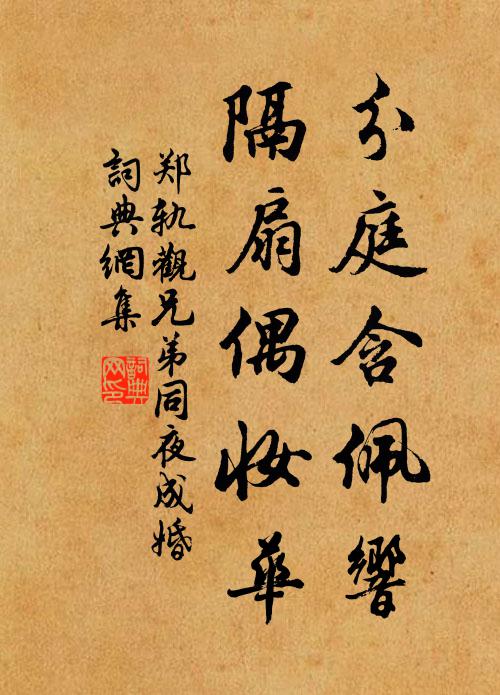 分庭含佩響
隔扇偶妝華
郑軌觀兄弟同夜成婚
詞典網集
詞典网印